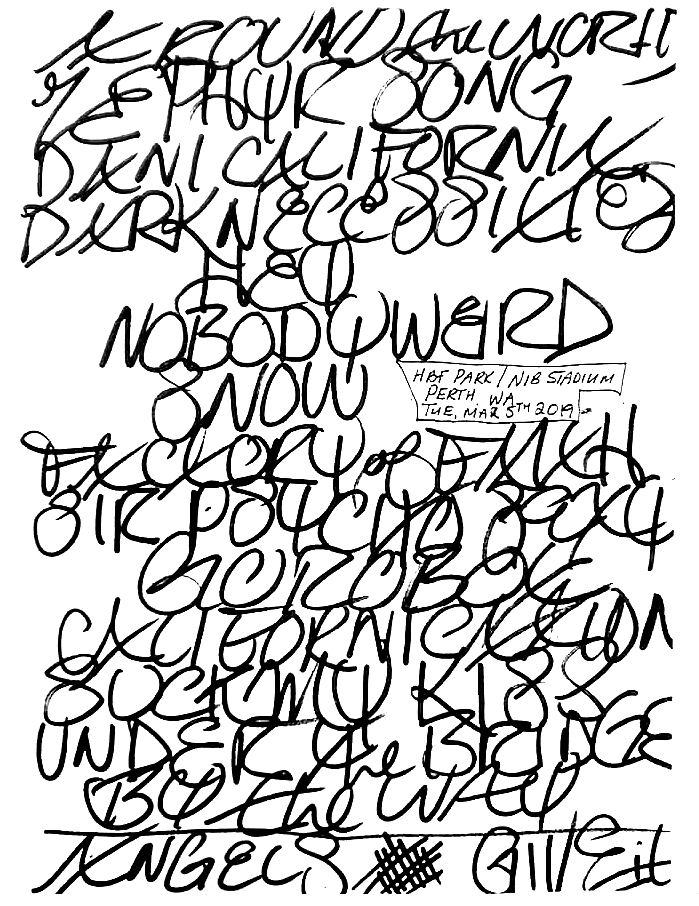 AROUND the WORLD
ZEPHYR SONG
DANI CALIFORNIA
DARK NECESSITIES
HEY
NOBODY WEIRD
SNOW
HBF PARK / NIB STADIUM
PERTH, WA
TUE, MAR 5TH 2019
FACTORY of FAITH
SIR PSYCHO SEXY
GO ROBOT
CALIFORNICATION
SUCK MY KISS
UNDER the BRIDGE
BY the WAY
ANGELS GIVE it